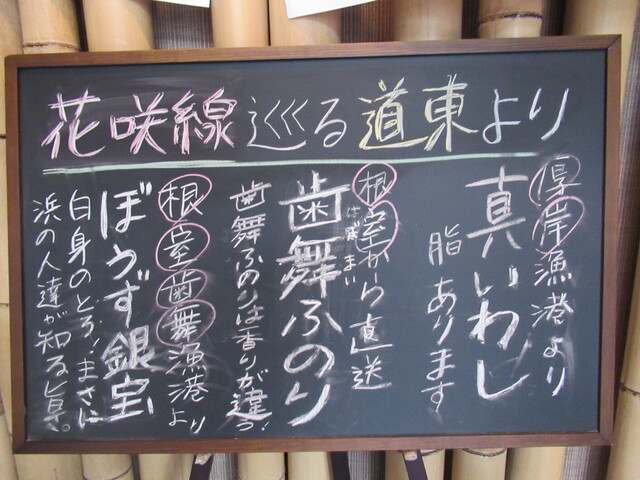 花咲線巡る道東より
厚岸漁港より
真いわし
脂あります
根室から直送
はぼまい
歯舞ふのり
歯舞ふのりは香りが違う!
根室歯舞漁港より
ぼうず銀宝
白身のとろ!まさに
浜の人達が知る旨。